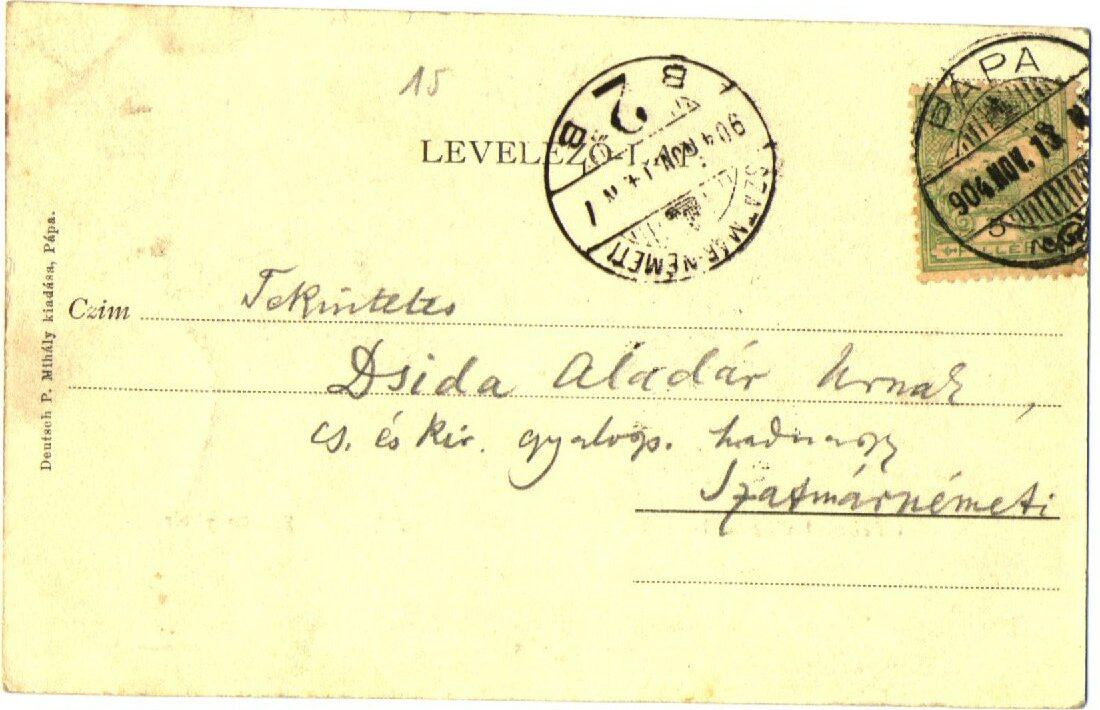 15
LEVELEZŐ-L
SZATMÁR-NÉMETI
904 NOV. 14
2
B B
PÁPA
904 NOV. 13
Deutsch P. Mihály kiadása, Pápa.
Czim
Tekintetes
Dsida Aladár Urnak,
cs. és kir. gyalogs. hadnagy
Szatmárnémeti